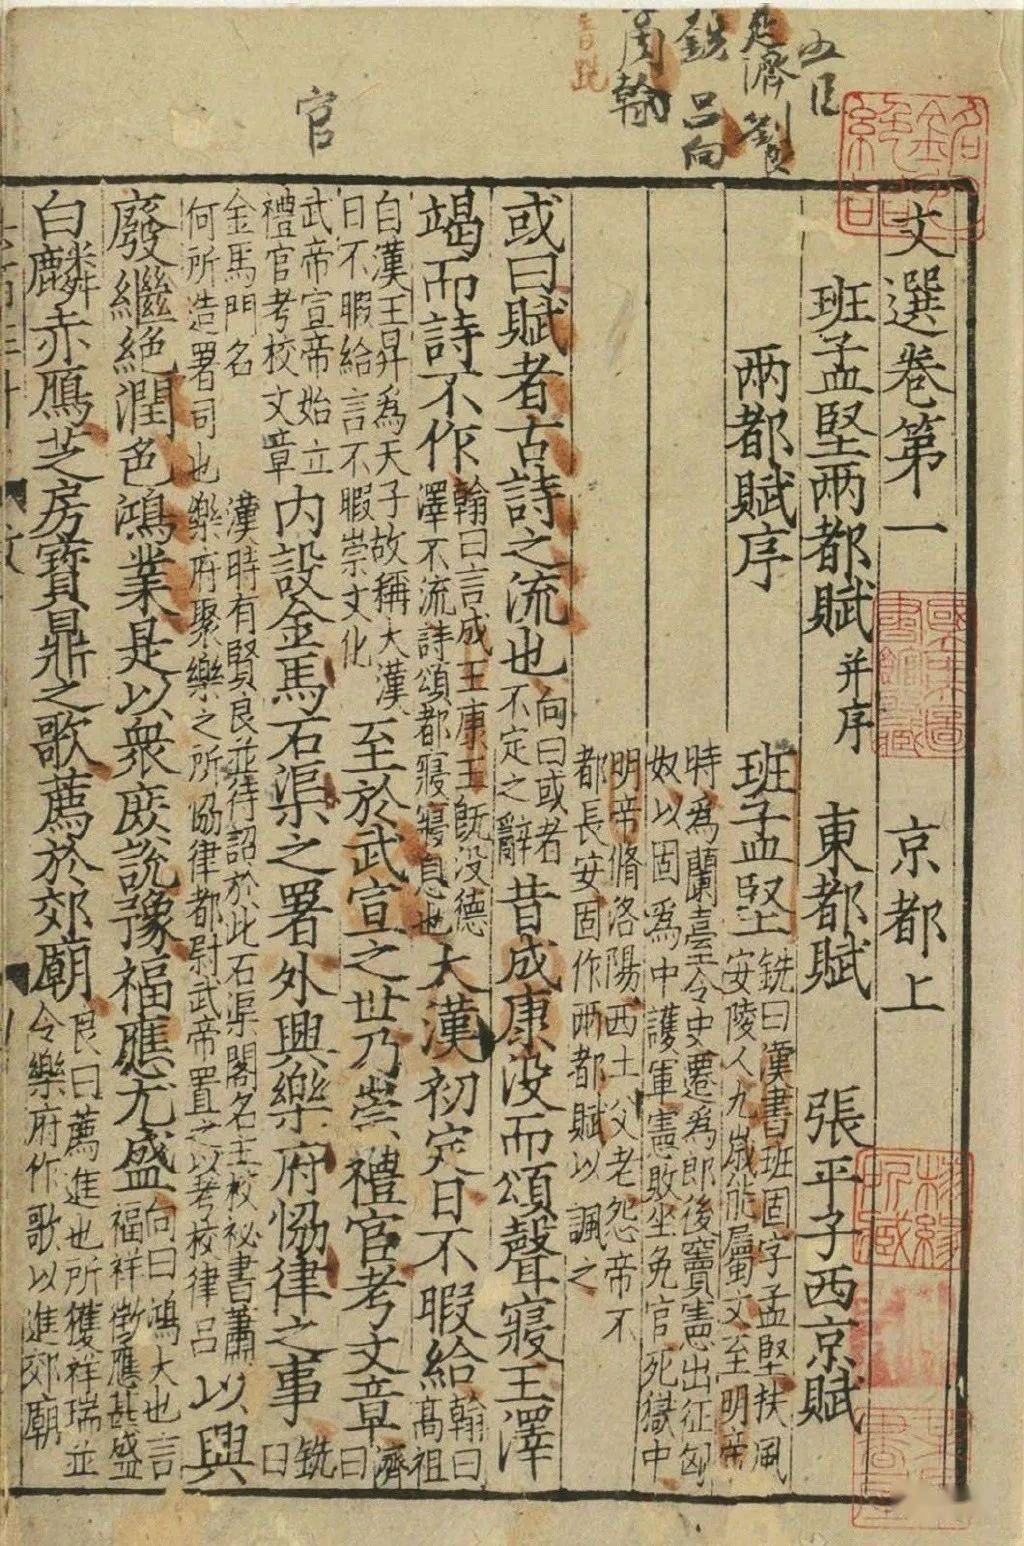 五臣
延濟 劉良
銑 吕向
周翰
官
文選卷第一 京都上
班孟堅兩都賦 并序 東都賦 張平子西京賦
兩都賦序 班孟堅 銑曰漢書班固字孟堅扶風
安陵人九歲能屬文至明帝
時爲蘭臺令史遷爲郎後竇憲出征匈
奴以固爲中護軍憲敗坐免官死獄中
明帝脩洛陽西土父老怨帝不
都長安固作兩都賦以諷之
或曰賦者古詩之流也 向曰或者
不定之辭 昔成康没而頌聲寢王澤
竭而詩不作 翰曰言成王康王旣没德
澤不流詩頌都寢寢息也 大漢初定日不暇給 翰曰
高祖
自漢王昇爲天子故稱大漢
日不暇給言不暇崇文化 至於武宣之世乃崇禮官考文章 濟
曰
武帝宣帝始立
禮官考校文章 内設金馬石渠之署外興樂府恊律之事 銑
曰
金馬門名 漢時有賢良並待詔於此石渠閣名主校祕書蕭
何所造署司也樂府聚樂之所恊律都尉武帝置之以考校律吕 以興
廢繼絶潤色鴻業是以衆庶說豫福應尤盛 向曰鴻大也言
福祥徵應甚盛
白麟赤鴈芝房寶鼎之歌薦於郊廟 良曰薦進也所獲祥瑞並
令樂府作歌以進郊廟